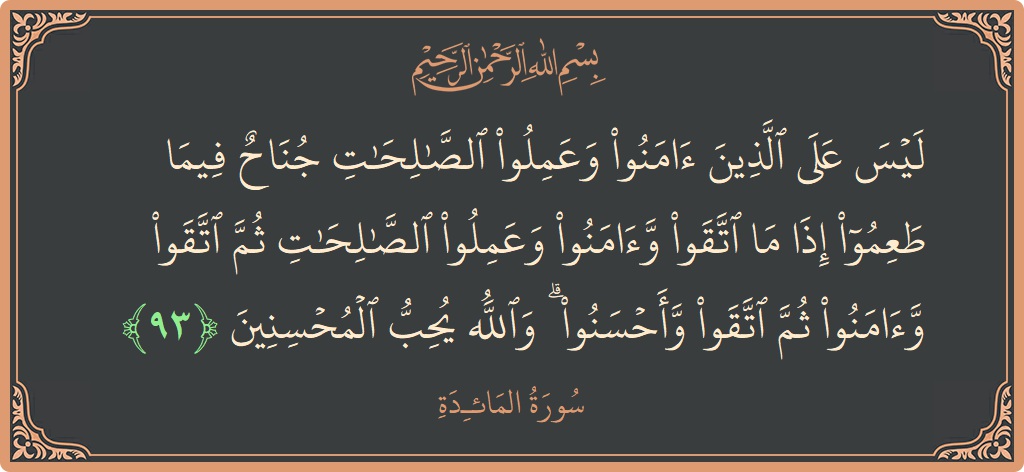 بِسْمِ اللَّهِ الرَّحْمَٰنِ الرَّحِيمِ
لَيْسَ عَلَى ٱلَّذِينَ ءَامَنُوا۟ وَعَمِلُوا۟ ٱلصَّـٰلِحَـٰتِ جُنَاحٌ فِيمَا
طَعِمُوٓا۟ إِذَا مَا ٱتَّقَوا۟ وَّءَامَنُوا۟ وَعَمِلُوا۟ ٱلصَّـٰلِحَـٰتِ ثُمَّ ٱتَّقَوا۟
وَّءَامَنُوا۟ ثُمَّ ٱتَّقَوا۟ وَّأَحْسَنُوا۟ ۗ وَٱللَّهُ يُحِبُّ ٱلْمُحْسِنِينَ ﴿٩٣﴾
سُورَةُ المَائـِدَةِ